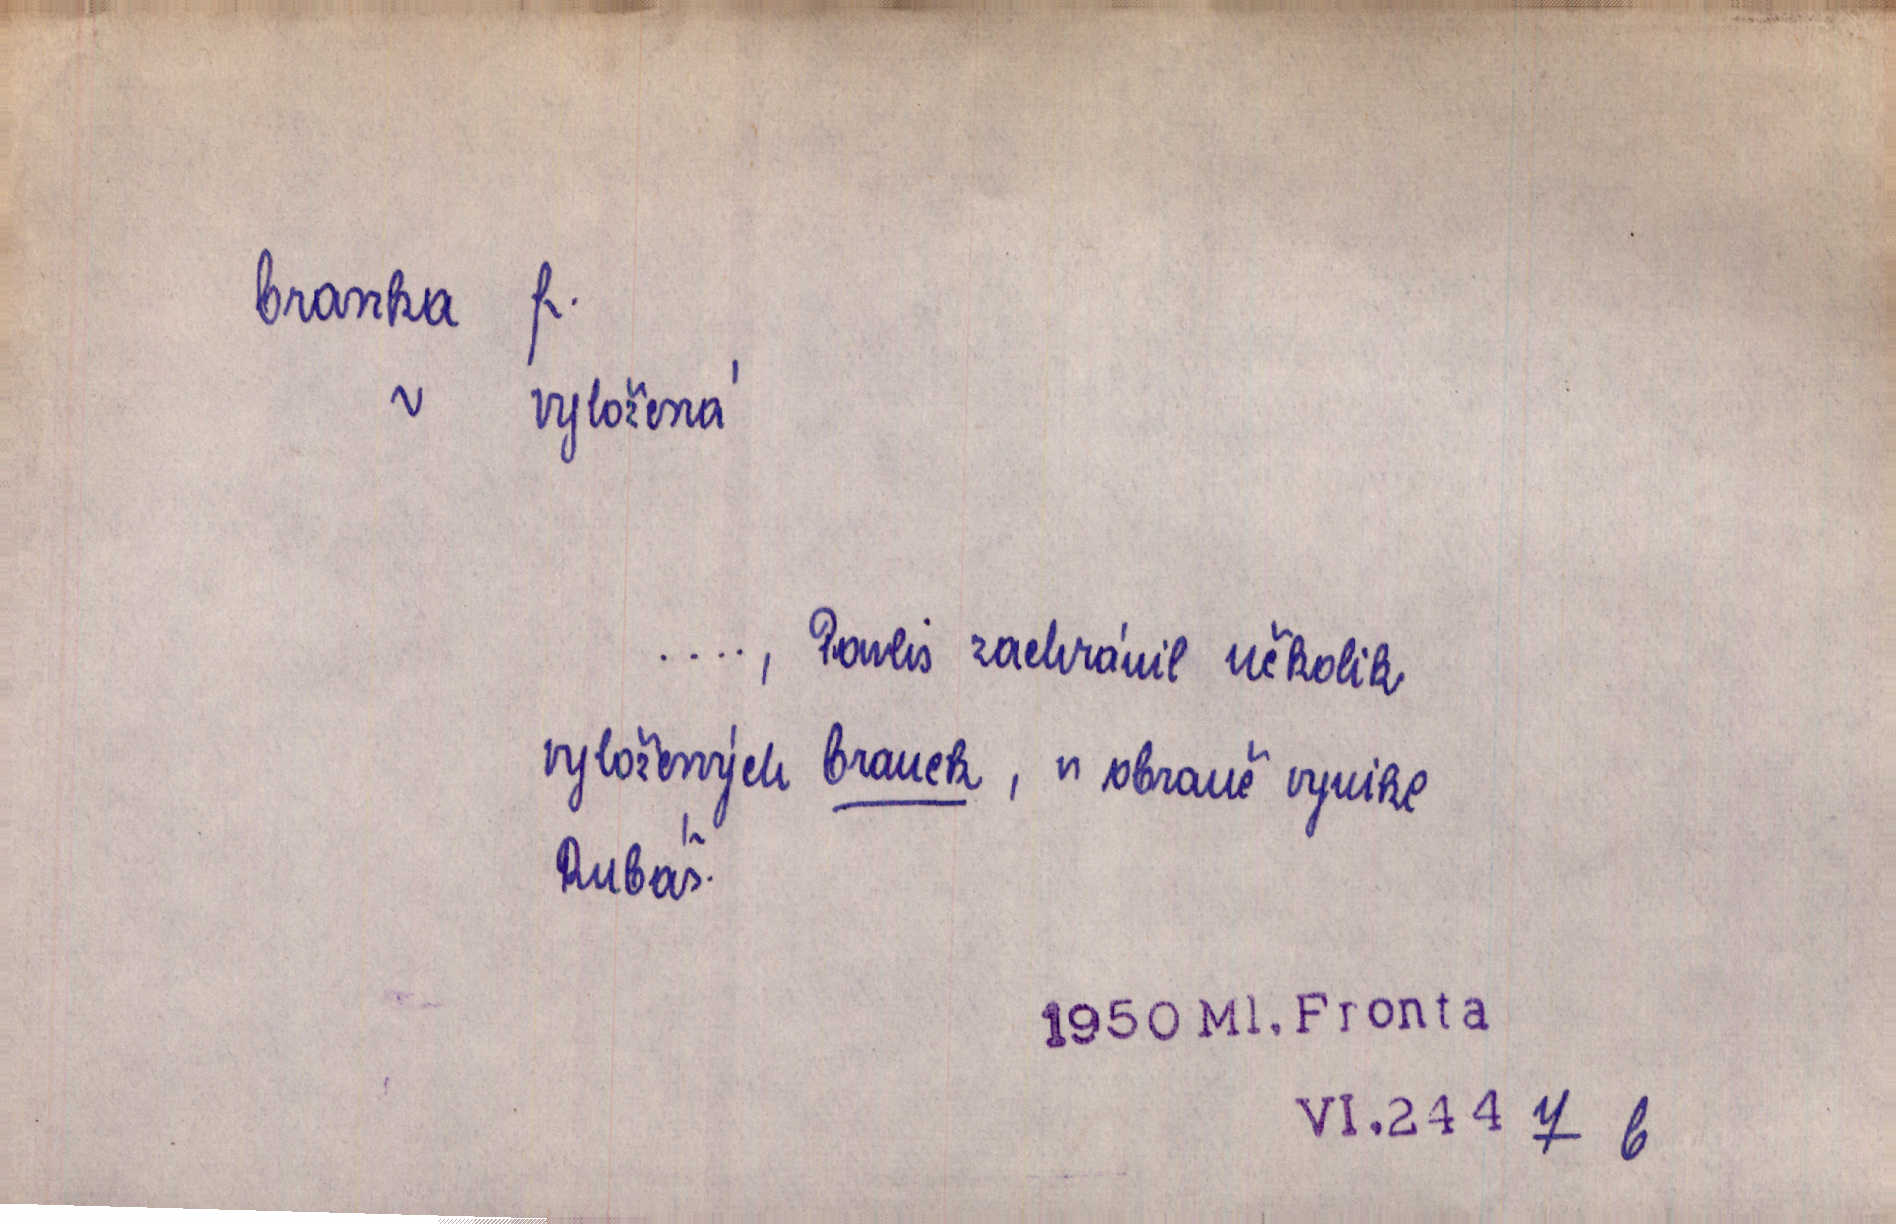 branka f.
~ vyložená
...., Pavlis zachránil několik
vyložených branek, v obraně vynikl
Rubáš.
1950 Ml. Fronta
VI. 244 7 b